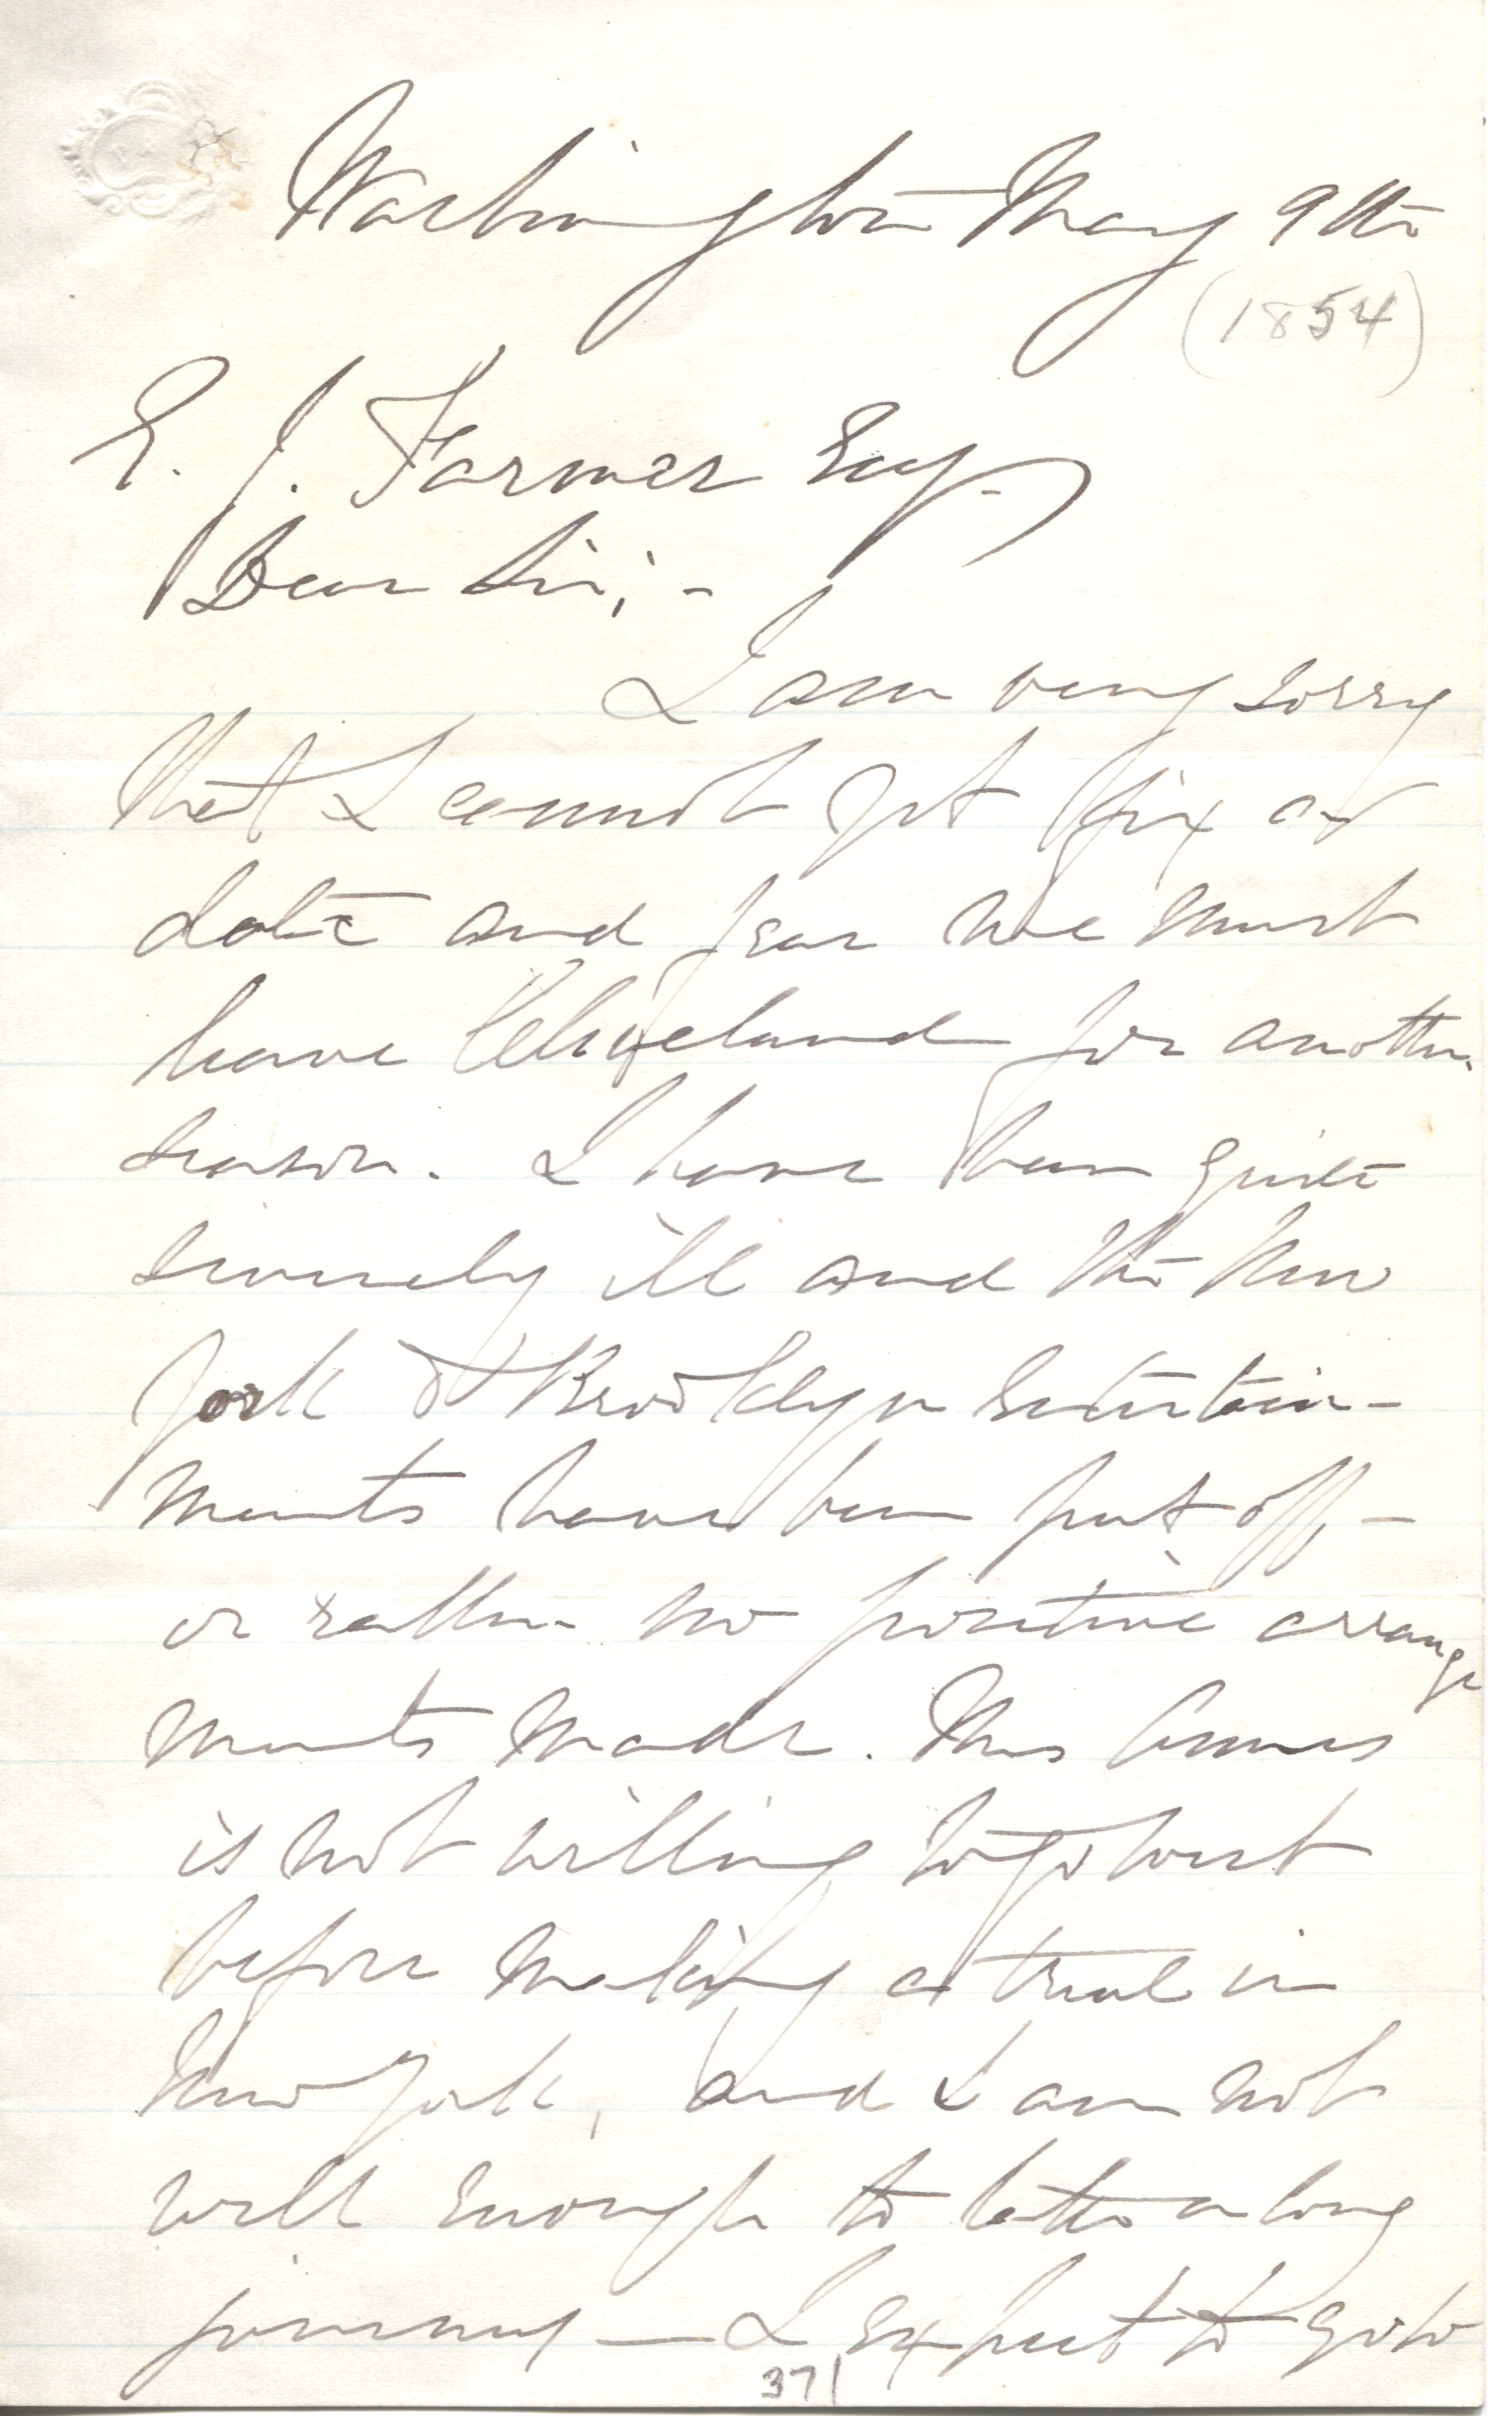 Washington May 9th
(1854)
E. J. Farmer Esq.
Dear Sir; -
I am very sorry
that I cannot yet fix a
date and fear we must
leave Cleveland for another
season. I have been quite
severely ill and the New
York & Brooklyn Entertain-
ments have been put off -
or rather no positive arrange
ments made. Mrs
is not willing to go West
before making a trial in
New York, and I am not
well enough to take a long
journey — I expect to go to
371